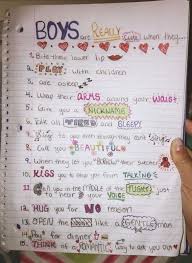 BOYS are REALLY cute when they...
1. Bite their lower lip
2. PLAY with children
3. are asleep
4. Wrap their ARMS around your WAIST
5. Give you a NICKNAME
6. Talk all TIRED and SLEEPY
7. to you even though they can't
8. Call you BEAUTIFUL
9. When they let you their sweater
10. KISS you to stop you from TALKING
11. Call you in the MIDDLE of the NIGHT just
to hear your VOICE
12. HUG you for NO reason
13. OPEN the like a GENTLEMAN
14. Pay for dinner
15. THINK of a ROMANTIC way to ask you out